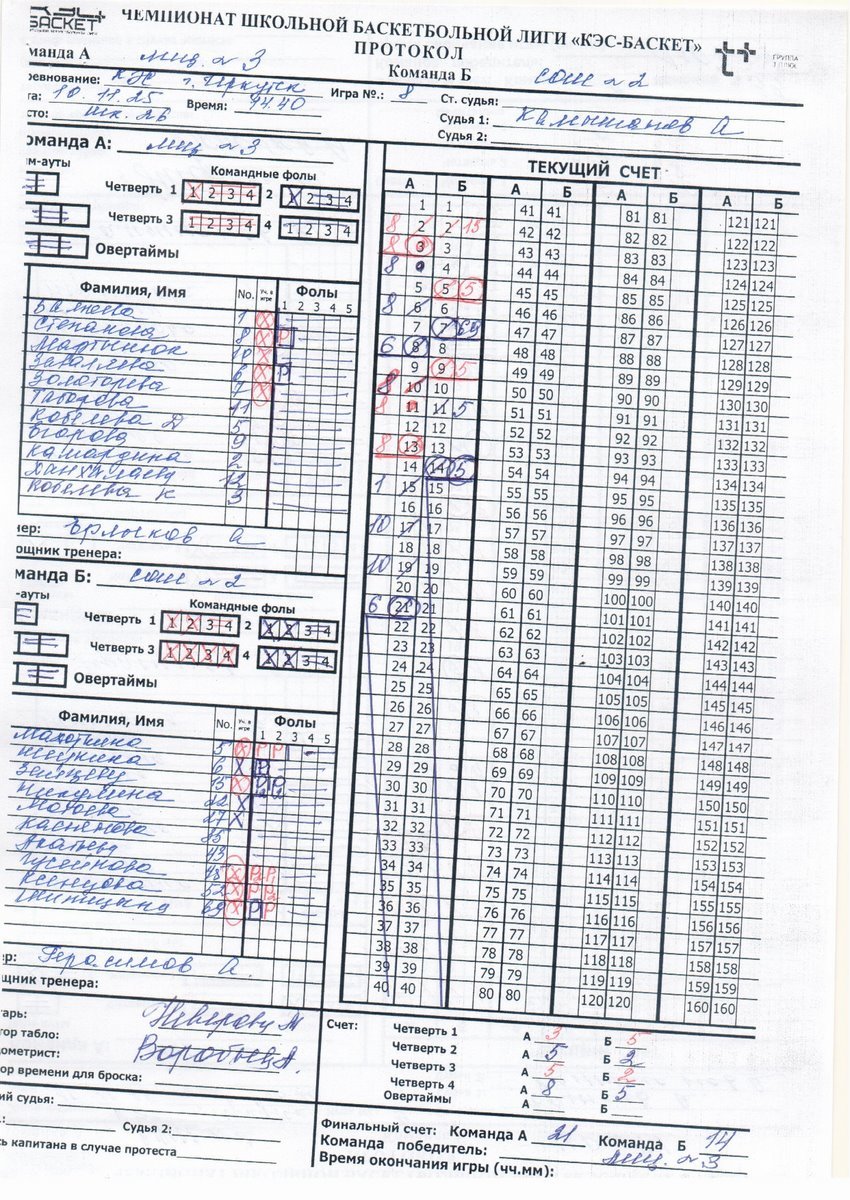 БАСКЕТ
ЧЕМПИОНАТ ШКОЛЬНОЙ БАСКЕТБОЛЬНОЙ ЛИГИ «КЭС-БАСКЕТ»
ПРОТОКОЛ
манда А лиц. № 3 Команда Б сош № 2
ревнование: КЭС г. Иркутск Игра №.: 8 Ст. судья:
та: 10.11.25 Время: 14.40 Судья 1: Калышанов А
сто: шк. 26 Судья 2:
оманда А: лиц № 3
м-ауты Командные фолы
Четверть 1 1 2 3 4 2 1 2 3 4
Четверть 3 1 2 3 4 4 1 2 3 4
Овертаймы
Фамилия, Имя No. Уч. в игре Фолы
1 2 3 4 5
1
Степанова 8 Р
Мартынюк 10
6 Р
Золоторева 7
11
Кобелева Д 5
Егорова 9
Камардина 2
12
Кобелева К 3
нер: Ерлыков А
ощник тренера:
манда Б: сош № 2
-ауты Командные фолы
Четверть 1 1 2 3 4 2 1 2 3 4
Четверть 3 1 2 3 4 4 1 2 3 4
Овертаймы
Фамилия, Имя No. Уч. в игре Фолы
1 2 3 4 5
5 Р Р
6
15
Никулина 22
27
35
43
48
52
69
ер: Герасимов А.
щник тренера:
тарь:
тор табло: Воробьев А.
дометрист:
ор времени для броска:
ий судья:
Судья 2:
сь капитана в случае протеста
ТЕКУЩИЙ СЧЕТ
А Б А Б А Б А Б
1 1 41 41 81 81 121 121
8 2 2 15 42 42 82 82 122 122
8 3 3 43 43 83 83 123 123
8 4 4 44 44 84 84 124 124
5 5 5 45 45 85 85 125 125
8 6 6 46 46 86 86 126 126
7 7 69 47 47 87 87 127 127
6 8 8 48 48 88 88 128 128
9 9 5 49 49 89 89 129 129
8 10 10 50 50 90 90 130 130
8 11 11 5 51 51 91 91 131 131
12 12 52 52 92 92 132 132
8 13 13 53 53 93 93 133 133
14 14 5 54 54 94 94 134 134
1 15 15 55 55 95 95 135 135
16 16 56 56 96 96 136 136
10 17 17 57 57 97 97 137 137
18 18 58 58 98 98 138 138
10 19 19 59 59 99 99 139 139
20 20 60 60 100 100 140 140
6 21 21 61 61 101 101 141 141
22 22 62 62 102 102 142 142
23 23 63 63 103 103 143 143
24 24 64 64 104 104 144 144
25 25 65 65 105 105 145 145
26 26 66 66 106 106 146 146
27 27 67 67 107 107 147 147
28 28 68 68 108 108 148 148
29 29 69 69 109 109 149 149
30 30 70 70 110 110 150 150
31 31 71 71 111 111 151 151
32 32 72 72 112 112 152 152
33 33 73 73 113 113 153 153
34 34 74 74 114 114 154 154
35 35 75 75 115 115 155 155
36 36 76 76 116 116 156 156
37 37 77 77 117 117 157 157
38 38 78 78 118 118 158 158
39 39 79 79 119 119 159 159
40 40 80 80 120 120 160 160
Счет: Четверть 1 А 3 Б 5
Четверть 2 А 5 Б 2
Четверть 3 А 5 Б 2
Четверть 4 А 8 Б 5
Овертаймы А Б
Финальный счет: Команда А 21 Команда Б 14
Команда победитель: лиц. № 3
Время окончания игры (чч.мм):